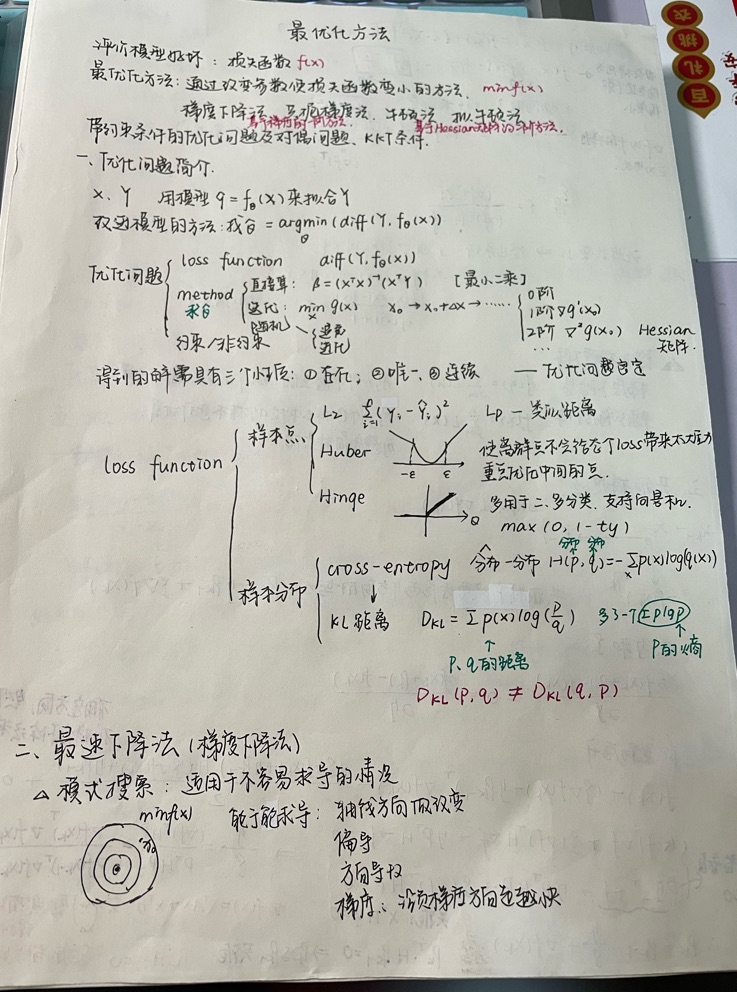 最优化方法
评价模型好坏：损失函数 f(x)
最优化方法：通过改变参数使损失函数变小的方法. min f(x)
梯度下降法 共轭梯度法 牛顿法 拟牛顿法
基于梯度的一阶方法. 基于Hessian矩阵的二阶方法.
带约束条件的优化问题及对偶问题、KKT条件.
一、优化问题简介.
X、Y 用模型 ŷ = fθ(X) 来拟合Y
改进模型的方法：找θ̂ = argmin (diff(Y, fθ(x))
θ
优化问题
loss function diff(Y, fθ(x))
method
求θ̂
直接算： β = (XᵀX)⁻¹(XᵀY) [最小二乘]
迭代： min g(x) x₀ → x₀+Δx → ······
x
0阶
1阶 ∇g'(x₀)
2阶 ∇²g(x₀) Hessian
矩阵.
...
约束/非约束
得到的解需具有三个性质：①存在；②唯一、③连续 —— 优化问题适定
loss function
样本点
L₂ Σ(Yᵢ - Ŷᵢ)² Lp — 类似距离
i=1
Huber
-ε ε
使离群点不会给整个loss带来太大压力
重点优化中间的点.
Hinge
θ
多用于二、多分类. 支持向量机.
max (0, 1-ty)
样本分布
分布 分布
cross-entropy 分布-分布 H(p, q) = -Σp(x)log(q(x))
x
KL 距离 DKL = Σp(x)log(p/q) 多了一个 Σplgp
p的熵
p、q的距离
DKL(p,q) ≠ DKL(q,p)
二、最速下降法(梯度下降法)
△ 模式搜索：适用于不容易求导的情况
minf(x) 能求导： 轴线方向改变
x₀
偏导
方向导数
梯度：沿负梯度方向走最快
百
礼
挑
衣